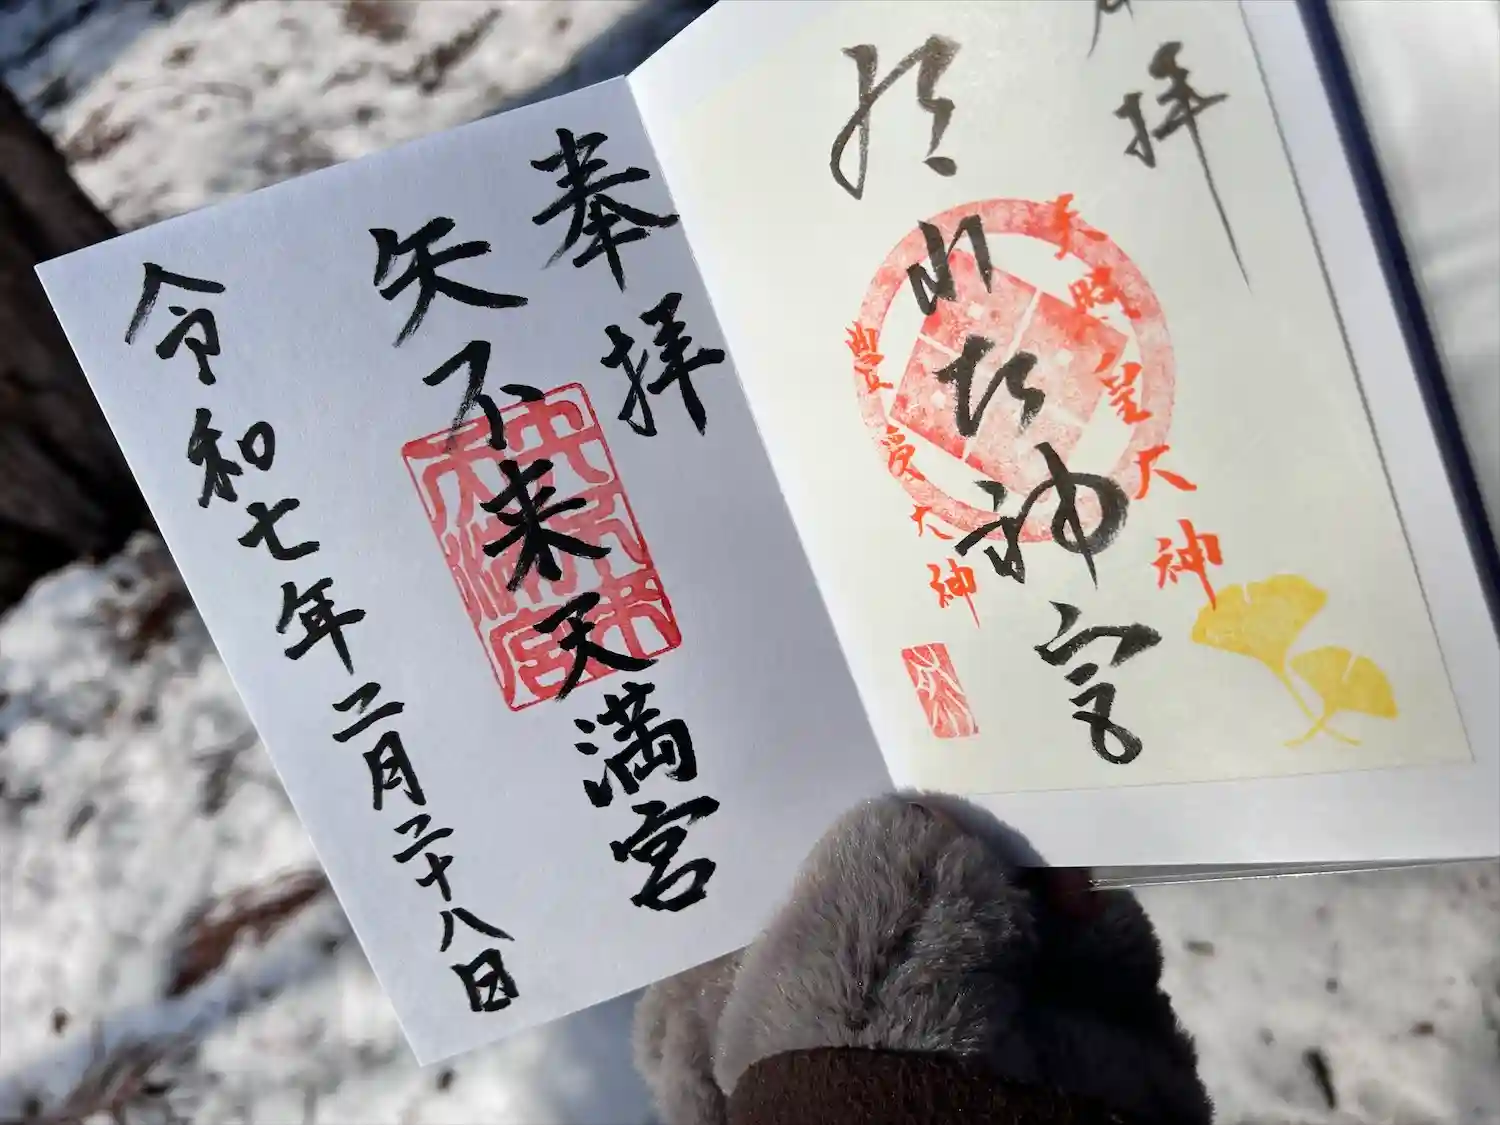 拝
神宮
天照皇大神
豊受大神
奉拝
矢不来天満宮
矢不来
天満宮
令和七年二月二十八日